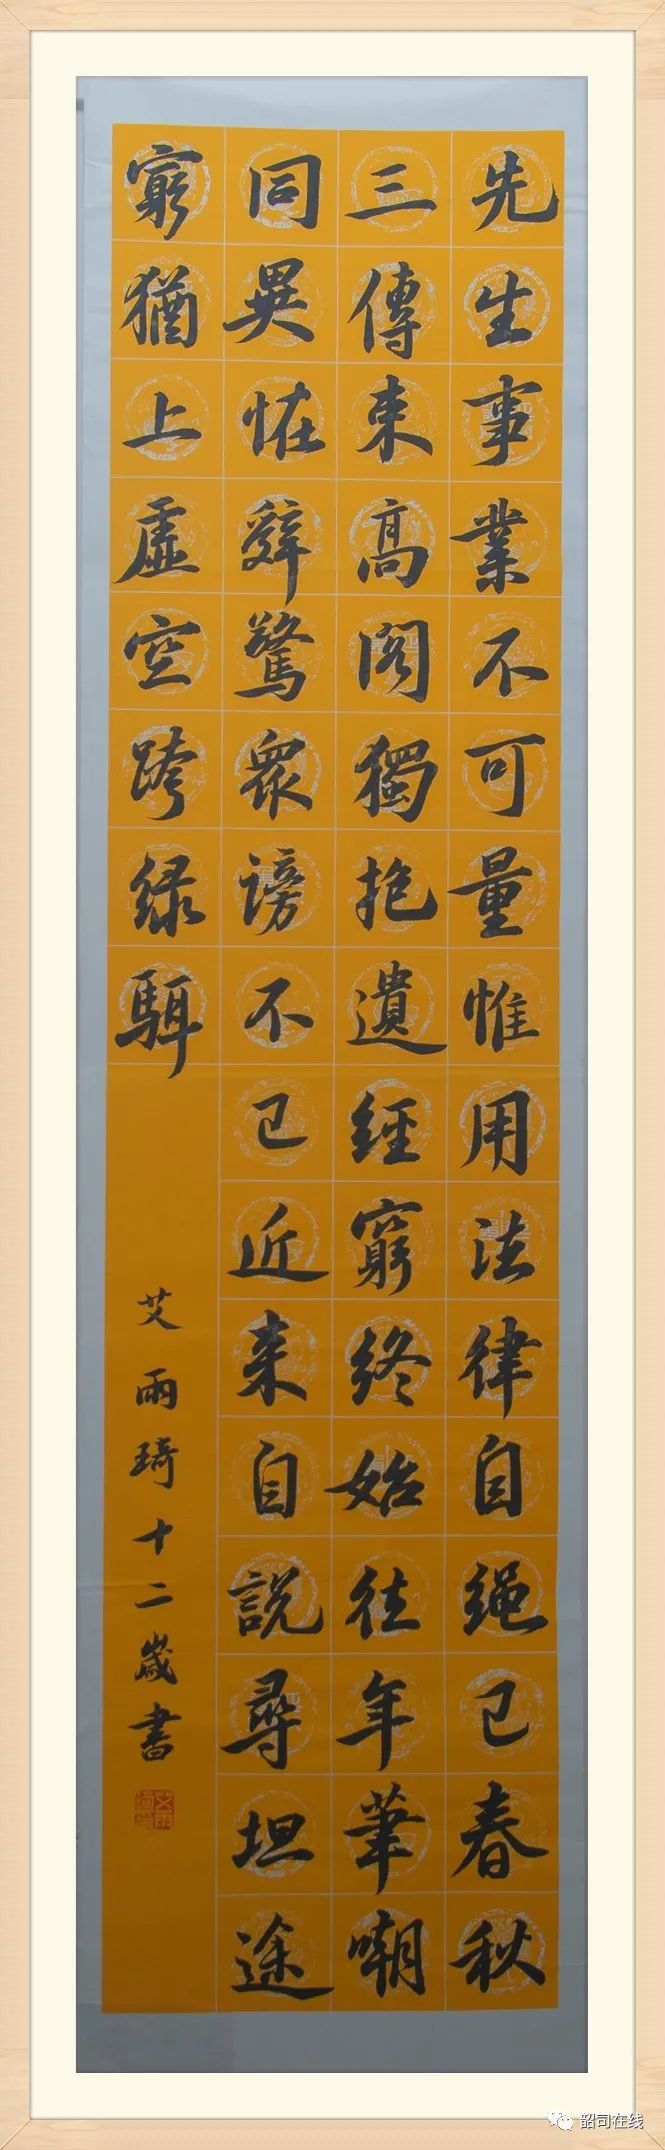 先生事業不可量惟用法律自绳己春秋
三傳束高阁獨抱遺经窮终始往年筆嘲
同異恠辤驚衆谤不已近来自說尋坦途
窮猶上虛空跨绿駬
艾雨琦十二歲書
艾雨
韶司在线